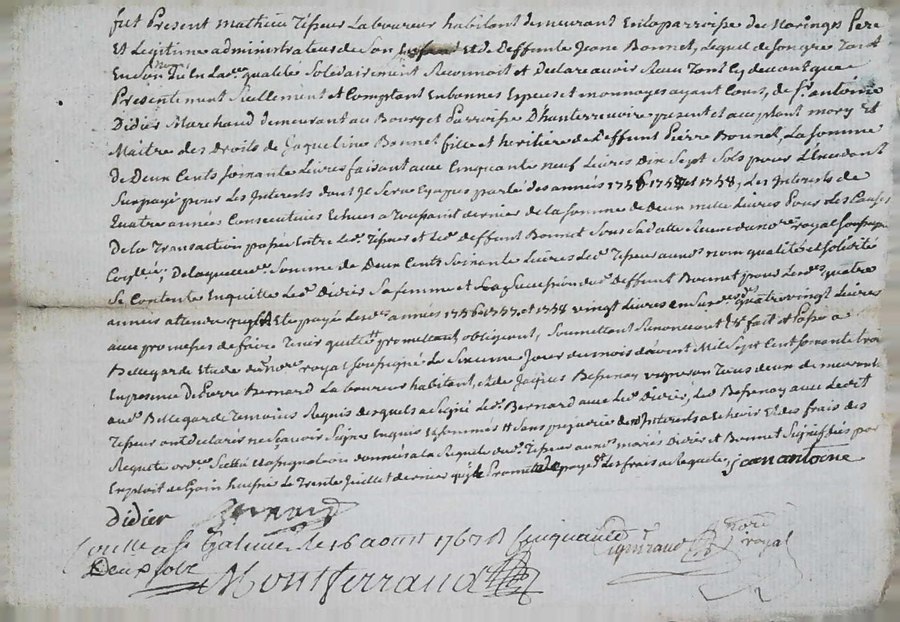 fut Present mathieu Tissieur Laboureur habitant demeurant en la parroisse de Maringes Pere
Et Legitime administrateur de son enfant et de Deffunte Jeane Bonnet, Lequel de son gré Tant
En son nom qu'en Lad. qualité Solidairement Reconnoit et Declare avoir Receu Tant Cy devant que
Presentement Reellement et Comptant En bonnes Especes et monnoyes ayant Cours, de Sr. antoine
Didier Marchand demeurant au Bourg et Parroisse D'hauterivoire present et acceptant mary Et
Maitre des droits de Jaqueline Bonnet fille et heritiere de Deffunt Pierre Bonnet, La somme
De Deux Cents soixante Livres faisant avec Cinquante neuf Livres Dix Sept Sols pour L'Excedent
Surpayé pour Les Interests dont Il sera Cy apres parlé des années 1756 1757 et 1758, Les Interests de
Quatre années Consecutives Echues a Toussaint dernier de la somme de Deux mille Livres Pour Les Causes
De la Transaction passée Entre Led. Tissieur et Led. deffunt Bonnet Sous Sa datte Receue du no.re royal soussigné
De laquelle somme de Deux Cents Soixante Livres Led. Tissieur aud. nom qualité et solidité
Se Contente En quitte Led. Didier Sa femme et La Succession dud. Deffunt Bonnet pour Lesd. quatre
années attendu qu'il a Eté payé Lesd. années 1756 1757 et 1758 vingt Livres En sus
quatre vingt Livres
avec promesses de faire Tenir quitte promettant obligeant, Soumettant Renoncant fait et Passé a
Bellegarde Etude du no.re royal soussigné Le Sixieme Jour du mois d'avout Mil Sept Cent soixante trois
En presence de Pierre Bernard Laboureur habitant, et de Jaques Bessenay vigneron Tous deux demeurants
aud. Bellegarde Temoins Requis desquels a Signé Led. Bernard avec Led. Didier, Led. Bessenay avec Ledit
Tissieur ont Declarés ne sçavoir Signer Enquis et sommés Sans prejudice des Interests a Echoir Et des frais des
Requete ord.ce Scellé et assignation donnés a la Requete dud. Tissieur aux d. mariés Didier et Bonnet Signiffiés par
Exploit de huissier Le Trente Juillet dernier qu'il Promet de payer Les frais de Requete jean antoine
Didier Bernard
Controllé a St Galmier le 16 aoust 1763 R Cinquante
Deux sols Montferrand
royal